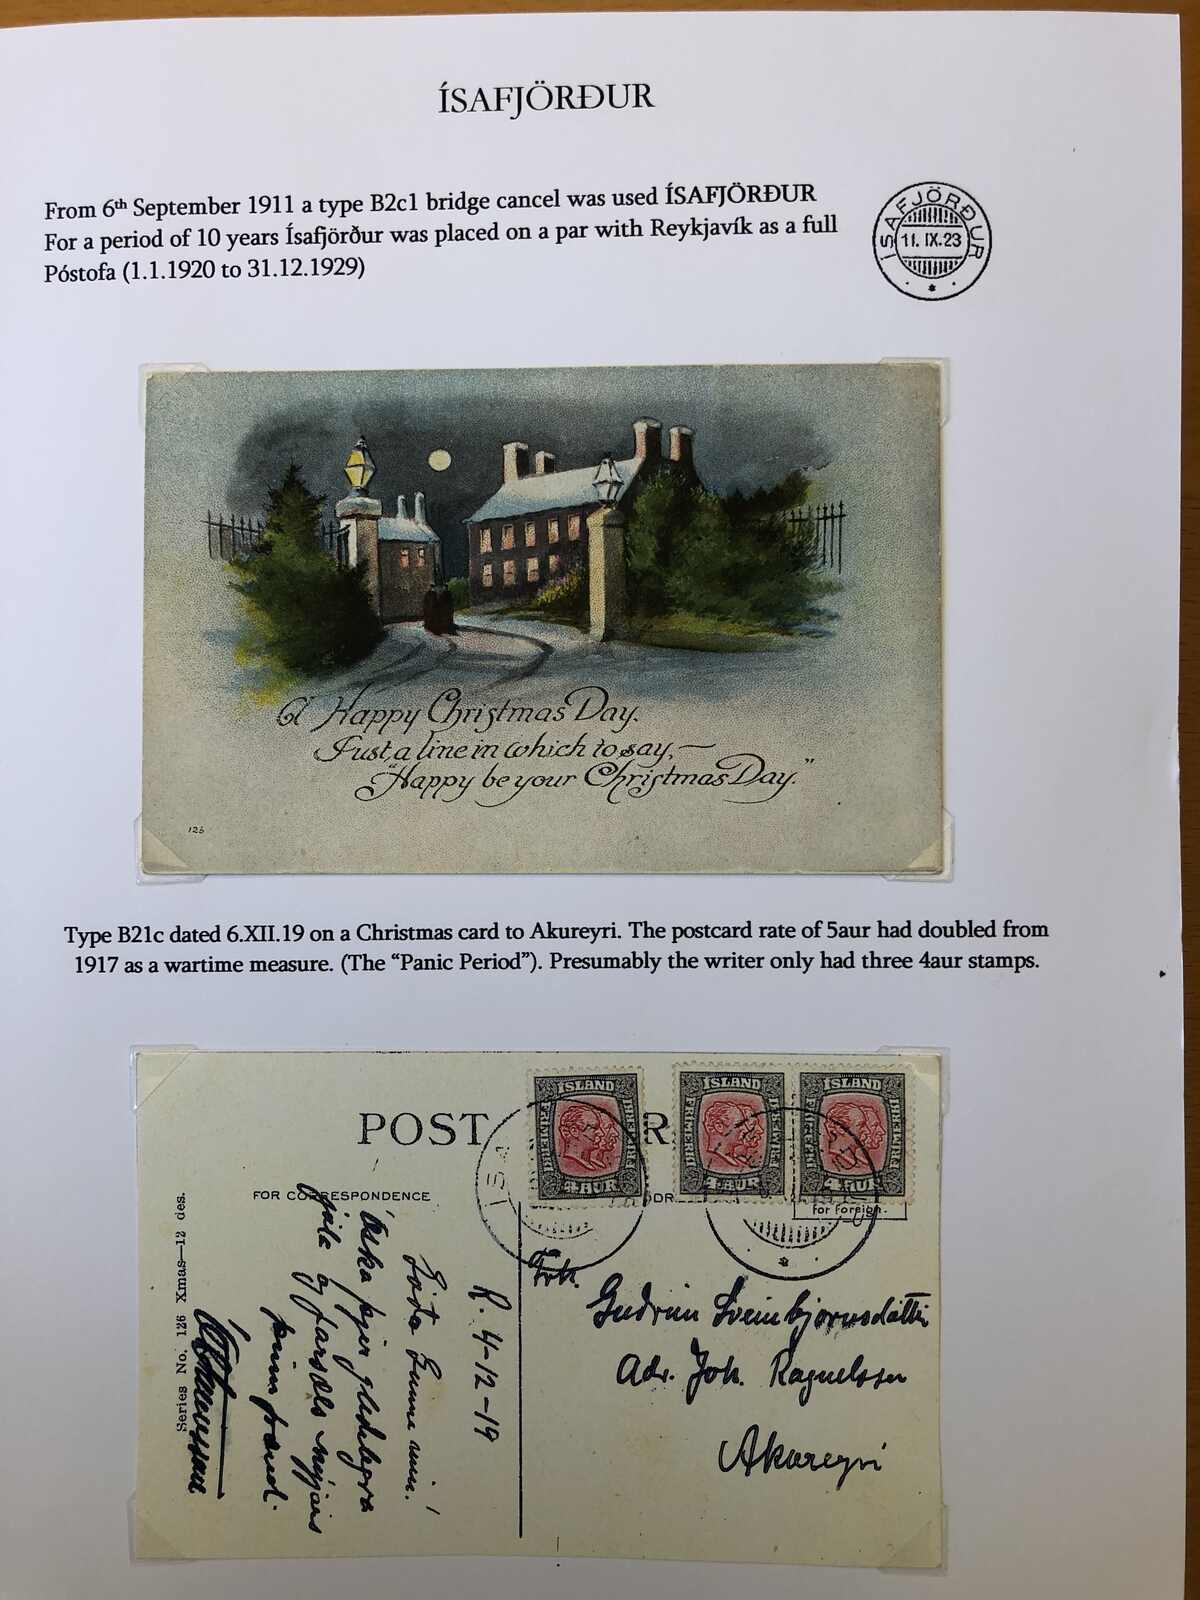 ÍSAFJÖRÐUR
From 6th September 1911 a type B2c1 bridge cancel was used ÍSAFJÖRÐUR
For a period of 10 years Ísafjörður was placed on a par with Reykjavík as a full
Póstofa (1.1.1920 to 31.12.1929)
ÍSAFJÖRÐUR
11. IX.23
A Happy Christmas Day.
Just a line in which to say,—
"Happy be your Christmas Day."
126
Type B21c dated 6.XII.19 on a Christmas card to Akureyri. The postcard rate of 5aur had doubled from
1917 as a wartime measure. (The “Panic Period”). Presumably the writer only had three 4aur stamps.
POST
R
FOR CORRESPONDENCE
ÍSLAND
FRIMERKI
4 AUR
ÍSLAND
FRIMERKI
4 AUR
ÍSLAND
FRIMERKI
4 AUR
for Foreign.
ÍSA
Series No. 126 Xmas—12 des.
R. 4-12-19
Góða Gunna mín!
Óska þjer gleðilegra
jóla og farsæls nýjárs
þinn frænd.
Frk.
Guðrún Sveinbjörnsdóttir
Adr. Joh. Ragúelsson
Akureyri